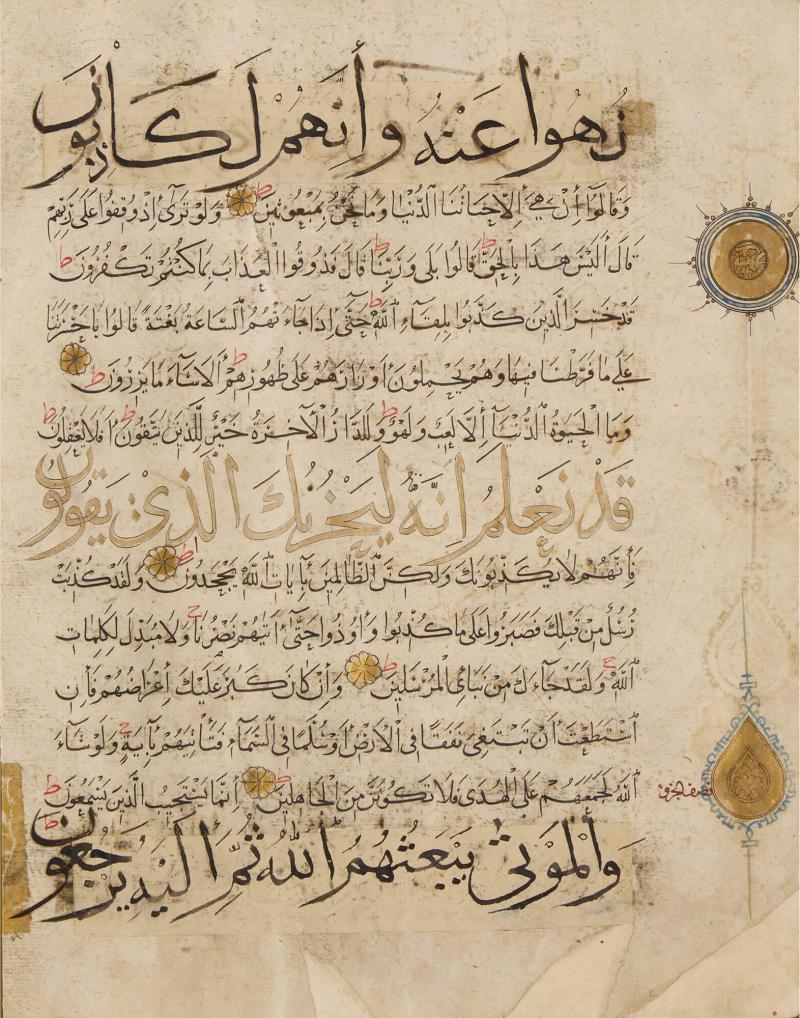 نُهوا عَنْهُ وَإِنَّهُمْ لَكَاذِبُونَ
وَقَالُوا إِنْ هِيَ إِلَّا حَيَاتُنَا الدُّنْيَا وَمَا نَحْنُ بِمَبْعُوثِينَ وَلَوْ تَرَىٰ إِذْ وُقِفُوا عَلَى رَبِّهِمْ
قَالَ أَلَيْسَ هَذَا بِالْحَقِّ قَالُوا بَلَى وَرَبِّنَا قَالَ فَذُوقُوا الْعَذَابَ بِمَا كُنْتُمْ تَكْفُرُونَ
قَدْ خَسِرَ الَّذِينَ كَذَّبُوا بِلِقَاءِ اللَّهِ حَتَّى إِذَا جَاءَتْهُمُ السَّاعَةُ بَغْتَةً قَالُوا يَا حَسْرَتَنَا
عَلَى مَا فَرَّطْنَا فِيهَا وَهُمْ يَحْمِلُونَ أَوْزَارَهُمْ عَلَى ظُهُورِهِمْ أَلَا سَاءَ مَا يَزِرُونَ
وَمَا الْحَيَوةُ الدُّنْيَا إِلَّا لَعِبٌ وَلَهْوٌ وَلَلدَّارُ الْآخِرَةُ خَيْرٌ لِلَّذِينَ يَتَّقُونَ أَفَلَا يَعْقِلُونَ
قَدْ نَعْلَمُ إِنَّهُ لَيَحْزُنُكَ الَّذِي يَقُولُونَ
فَإِنَّهُمْ لَا يُكَذِّبُونَكَ وَلَكِنَّ الظَّالِمِينَ بِآيَاتِ اللَّهِ يَجْحَدُونَ وَلَقَدْ كُذِّبَتْ
رُسُلٌ مِنْ قَبْلِكَ فَصَبَرُوا عَلَى مَا كُذِّبُوا وَأُوذُوا حَتَّى أَتَيهُمْ نَصْرُنَا وَلَا مُبَدِّلَ لِكَلِمَاتِ
اللَّهِ وَلَقَدْ جَاءَكَ مِنْ نَبَأِى الْمُرْسَلِينَ وَإِنْ كَانَ كَبُرَ عَلَيْكَ إِعْرَاضُهُمْ فَإِنِ
اسْتَطَعْتَ أَنْ تَبْتَغِيَ نَفَقًا فِي الْأَرْضِ أَوْ سُلَّمًا فِي السَّمَاءِ فَتَأْتِيَهُمْ بِآيَةٍ وَلَوْ شَاءَ
اللَّهُ لَجَمَعَهُمْ عَلَى الْهُدَى فَلَا تَكُونَنَّ مِنَ الْجَاهِلِينَ إِنَّمَا يَسْتَجِيبُ الَّذِينَ يَسْمَعُونَ
نصف الحزب
وَالْمَوْتَى يَبْعَثُهُمُ اللَّهُ ثُمَّ إِلَيْهِ يُرْجَعُونَ